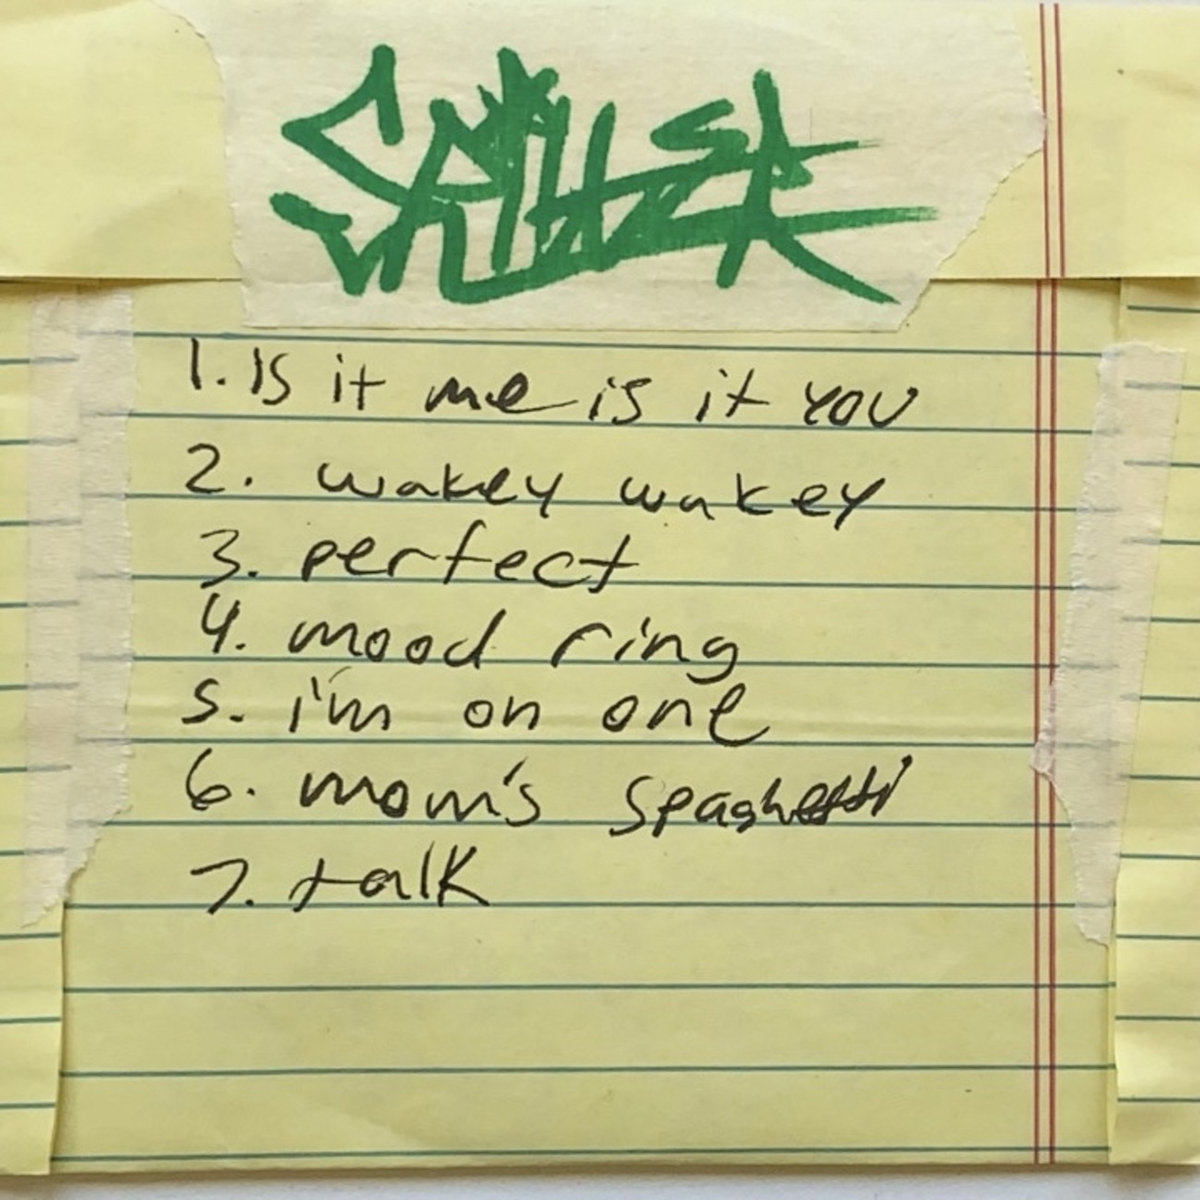 1. Is it me is it you
2. wakey wakey
3. perfect
4. mood ring
5. i'm on one
6. mom's spaghetti
7. talk